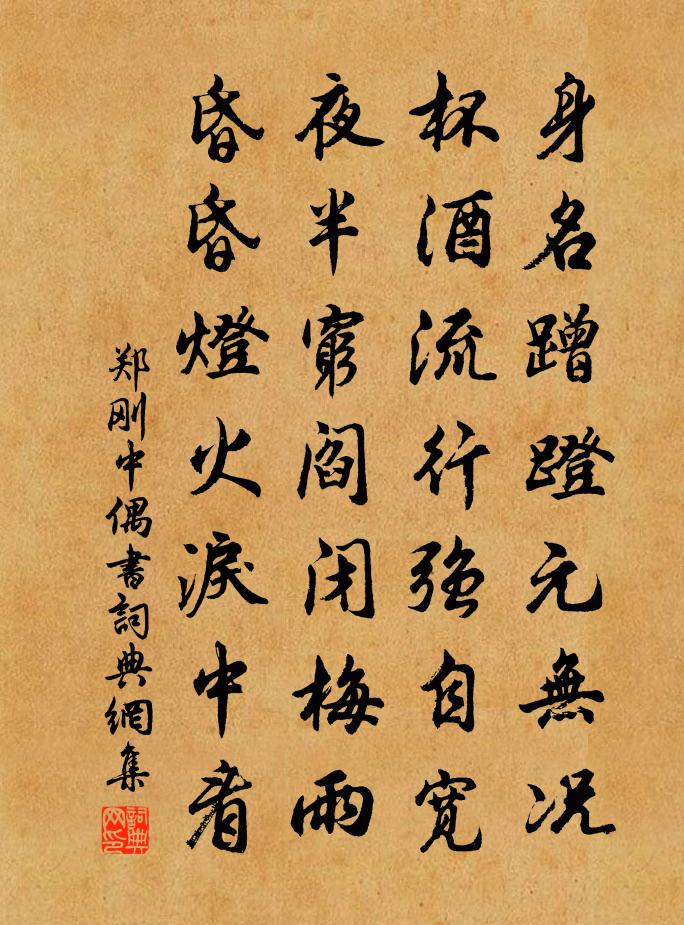 身名蹭蹬元無况
杯酒流行強自寬
夜半窮閻閉梅雨
昏昏燈火淚中看
郑刚中偶書詞典網集
詞典网印